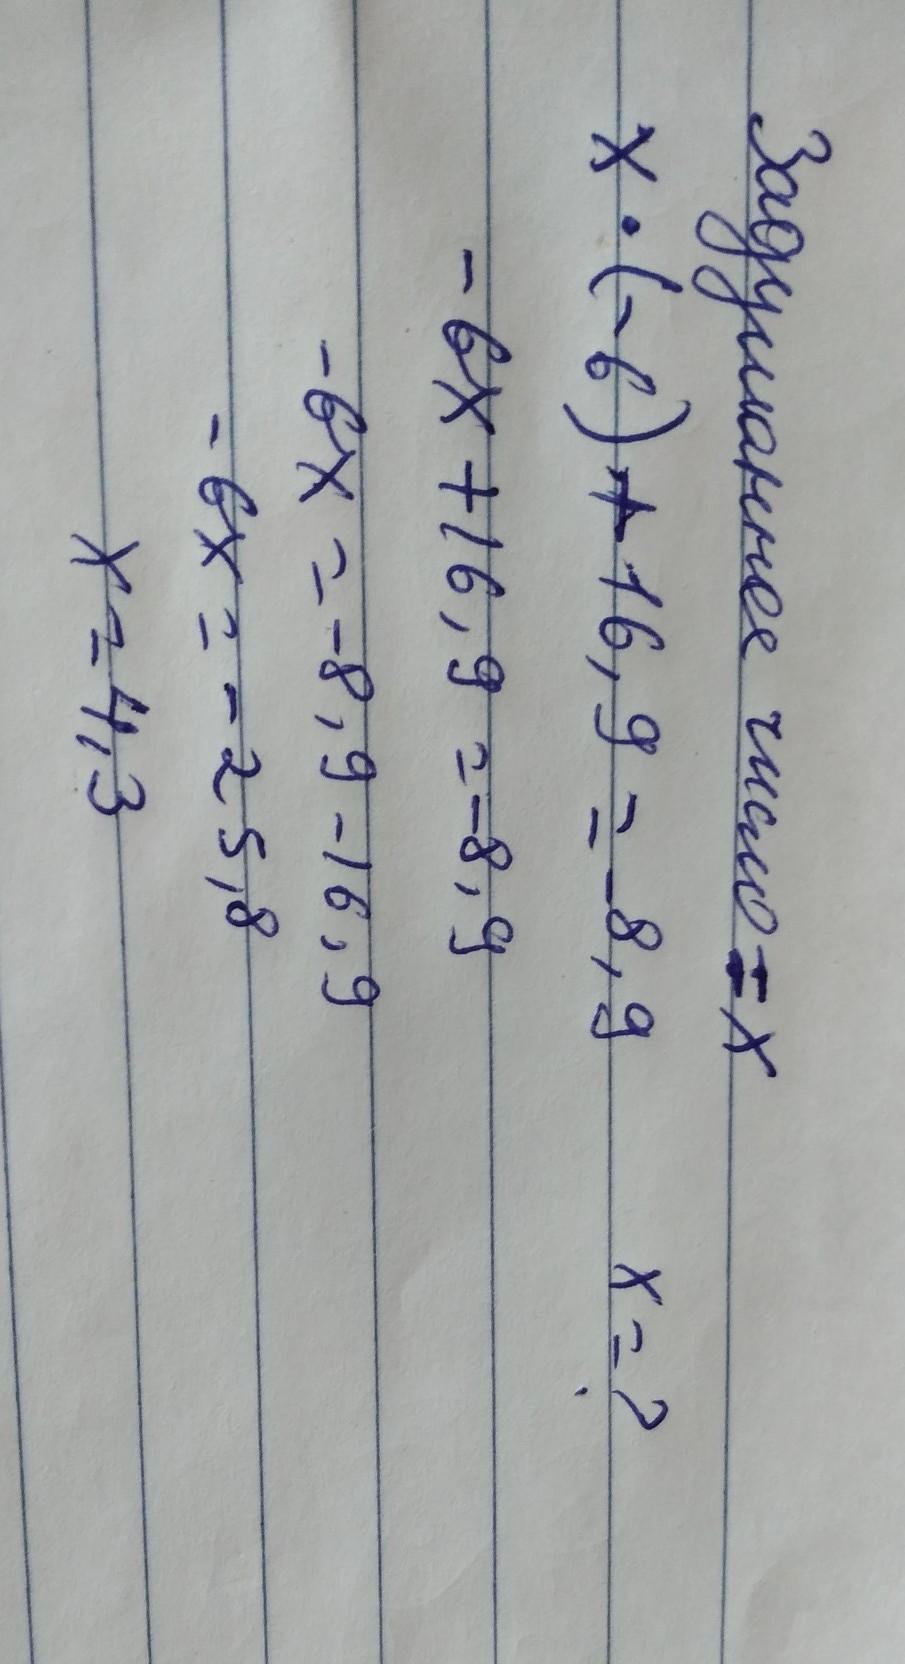 Задуманное число = x
x · (-6) + 16,9 = -8,9 x = ?
-6x + 16,9 = -8,9
-6x = -8,9 - 16,9
-6x = -25,8
x = 4,3